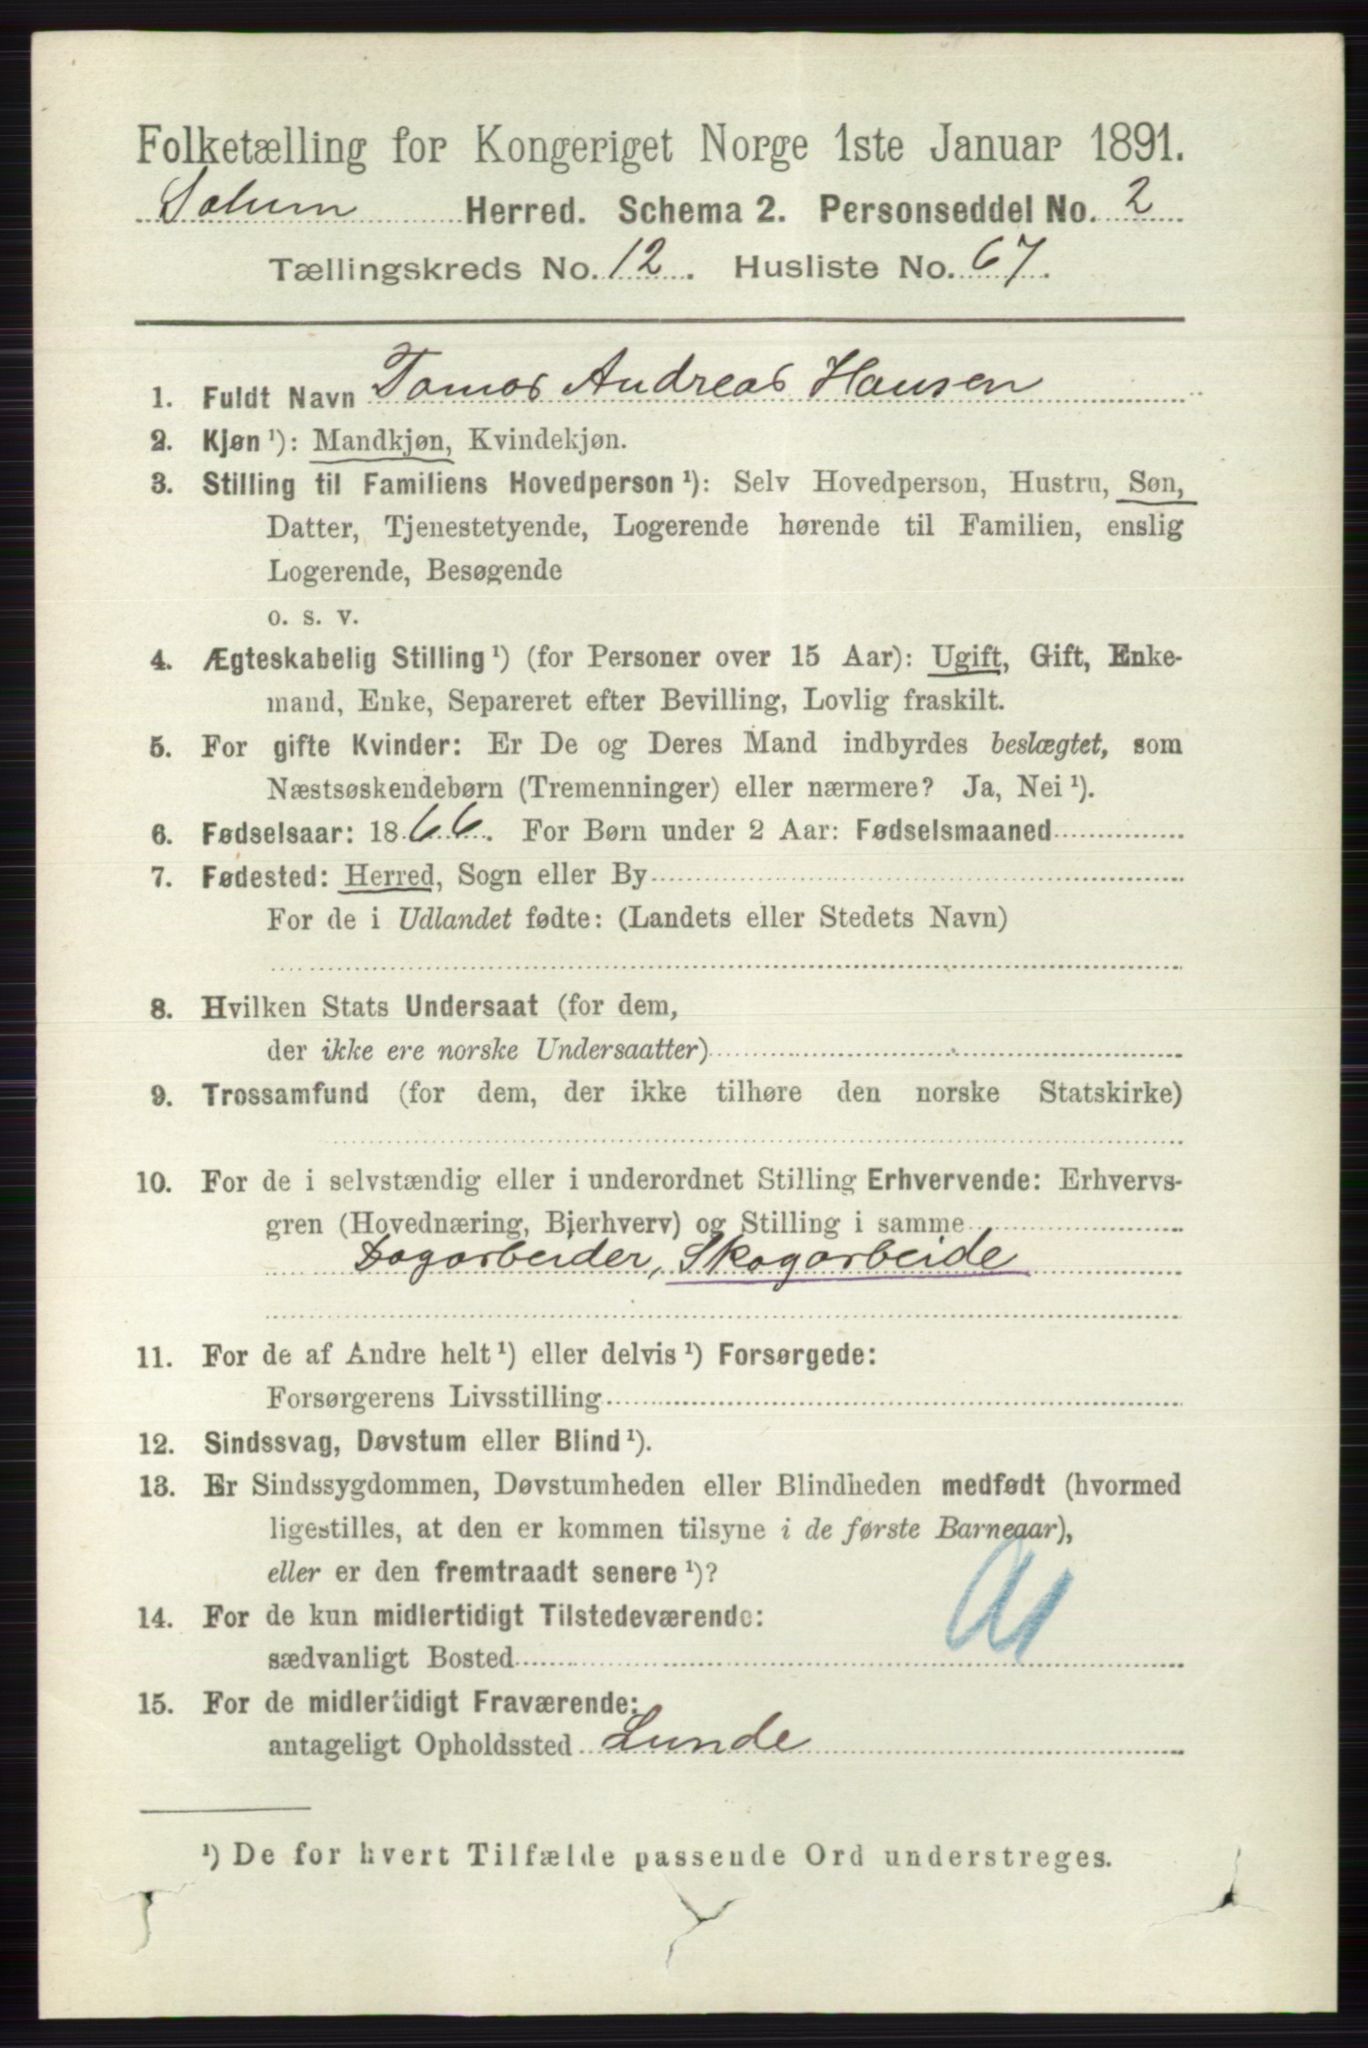 Folketælling for Kongeriget Norge 1ste Januar 1891.
Solum Herred. Schema 2. Personseddel No. 2
Tællingskreds No. 12. Husliste No. 67.
1. Fuldt Navn Tomas Andreas Hansen
2. Kjøn ¹): Mandkjøn, Kvindekjøn.
3. Stilling til Familiens Hovedperson ¹): Selv Hovedperson, Hustru, Søn,
Datter, Tjenestetyende, Logerende hørende til Familien, enslig
Logerende, Besøgende
o. s. v.
4. Ægteskabelig Stilling ¹) (for Personer over 15 Aar): Ugift, Gift, Enke-
mand, Enke, Separeret efter Bevilling, Lovlig fraskilt.
5. For gifte Kvinder: Er De og Deres Mand indbyrdes beslægtet, som
Næstsøskendebørn (Tremenninger) eller nærmere? Ja, Nei ¹).
6. Fødselsaar: 1866. For Børn under 2 Aar: Fødselsmaaned
7. Fødested: Herred, Sogn eller By
For de i Udlandet fødte: (Landets eller Stedets Navn)
8. Hvilken Stats Undersaat (for dem,
der ikke ere norske Undersaatter)
9. Trossamfund (for dem, der ikke tilhøre den norske Statskirke)
10. For de i selvstændig eller i underordnet Stilling Erhvervende: Erhvervs-
gren (Hovednæring, Bierhverv) og Stilling i samme
Dagarbeider, Skogarbeide
11. For de af Andre helt ¹) eller delvis ¹) Forsørgede:
Forsørgerens Livsstilling
12. Sindssvag, Døvstum eller Blind ¹).
13. Er Sindssygdommen, Døvstumheden eller Blindheden medfødt (hvormed
ligestilles, at den er kommen tilsyne i de første Barneaar),
eller er den fremtraadt senere ¹)?
14. For de kun midlertidigt Tilstedeværende:
sædvanligt Bosted
15. For de midlertidigt Fraværende:
antageligt Opholdssted Lunde
¹) De for hvert Tilfælde passende Ord understreges.